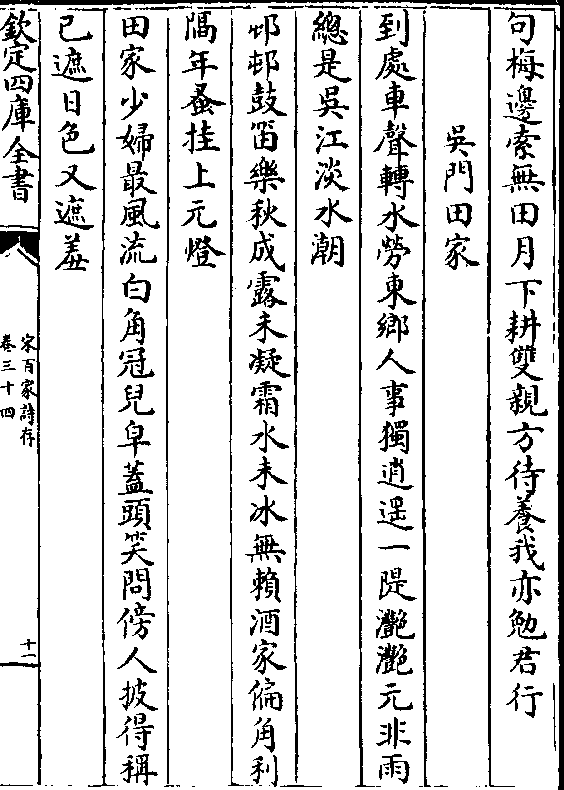 句梅邊索無田月下耕雙親方待養我亦勉君行
吳門田家
到處車聲轉水勞東鄉人事獨逍遥一隄灔灔元非雨
總是吳江淡水潮
邨邨鼓笛樂秋成露未凝霜水未冰無賴酒家偏角利
隔年蚤挂上元燈
田家少婦最風流白角冠兒皁蓋頭笑問傍人披得稱
已遮日色又遮羞
欽定四庫全書
宋百家詩存
卷三十四
十一